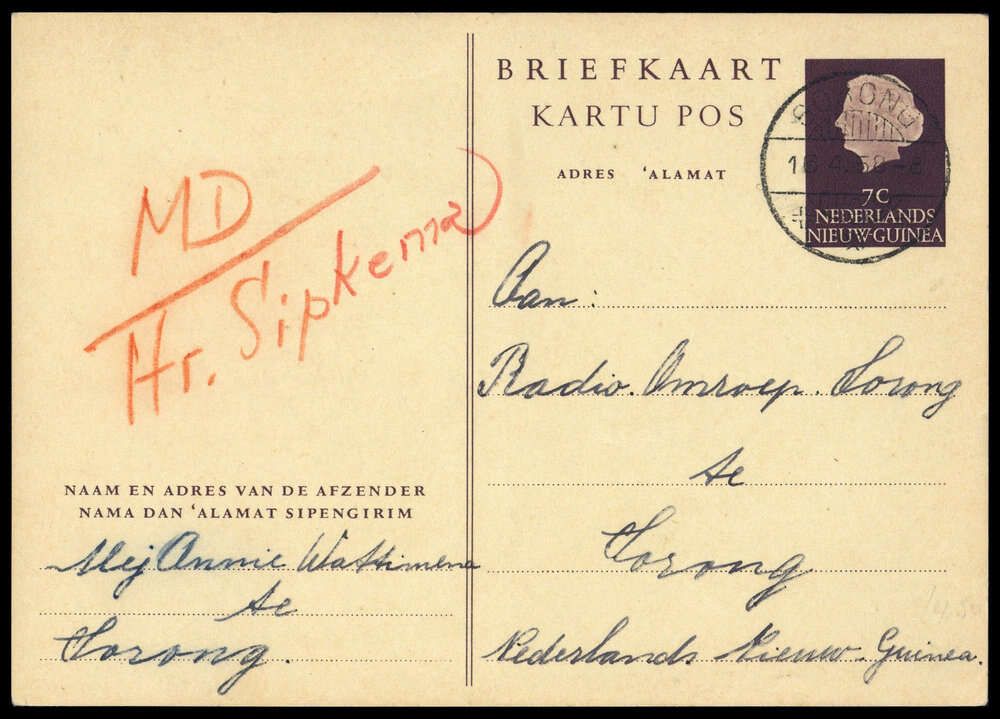 BRIEFKAART
KARTU POS
ADRES 'ALAMAT
7C
NEDERLANDS
NIEUW-GUINEA
SORONG
MD
Hr. Sipkema
Aan:
Radio. Omroep. Sorong
te
Sorong
Nederlands Nieuw-Guinea.
NAAM EN ADRES VAN DE AFZENDER
NAMA DAN 'ALAMAT SIPENGIRIM
Mej Annie Wattimena
te
Sorong.